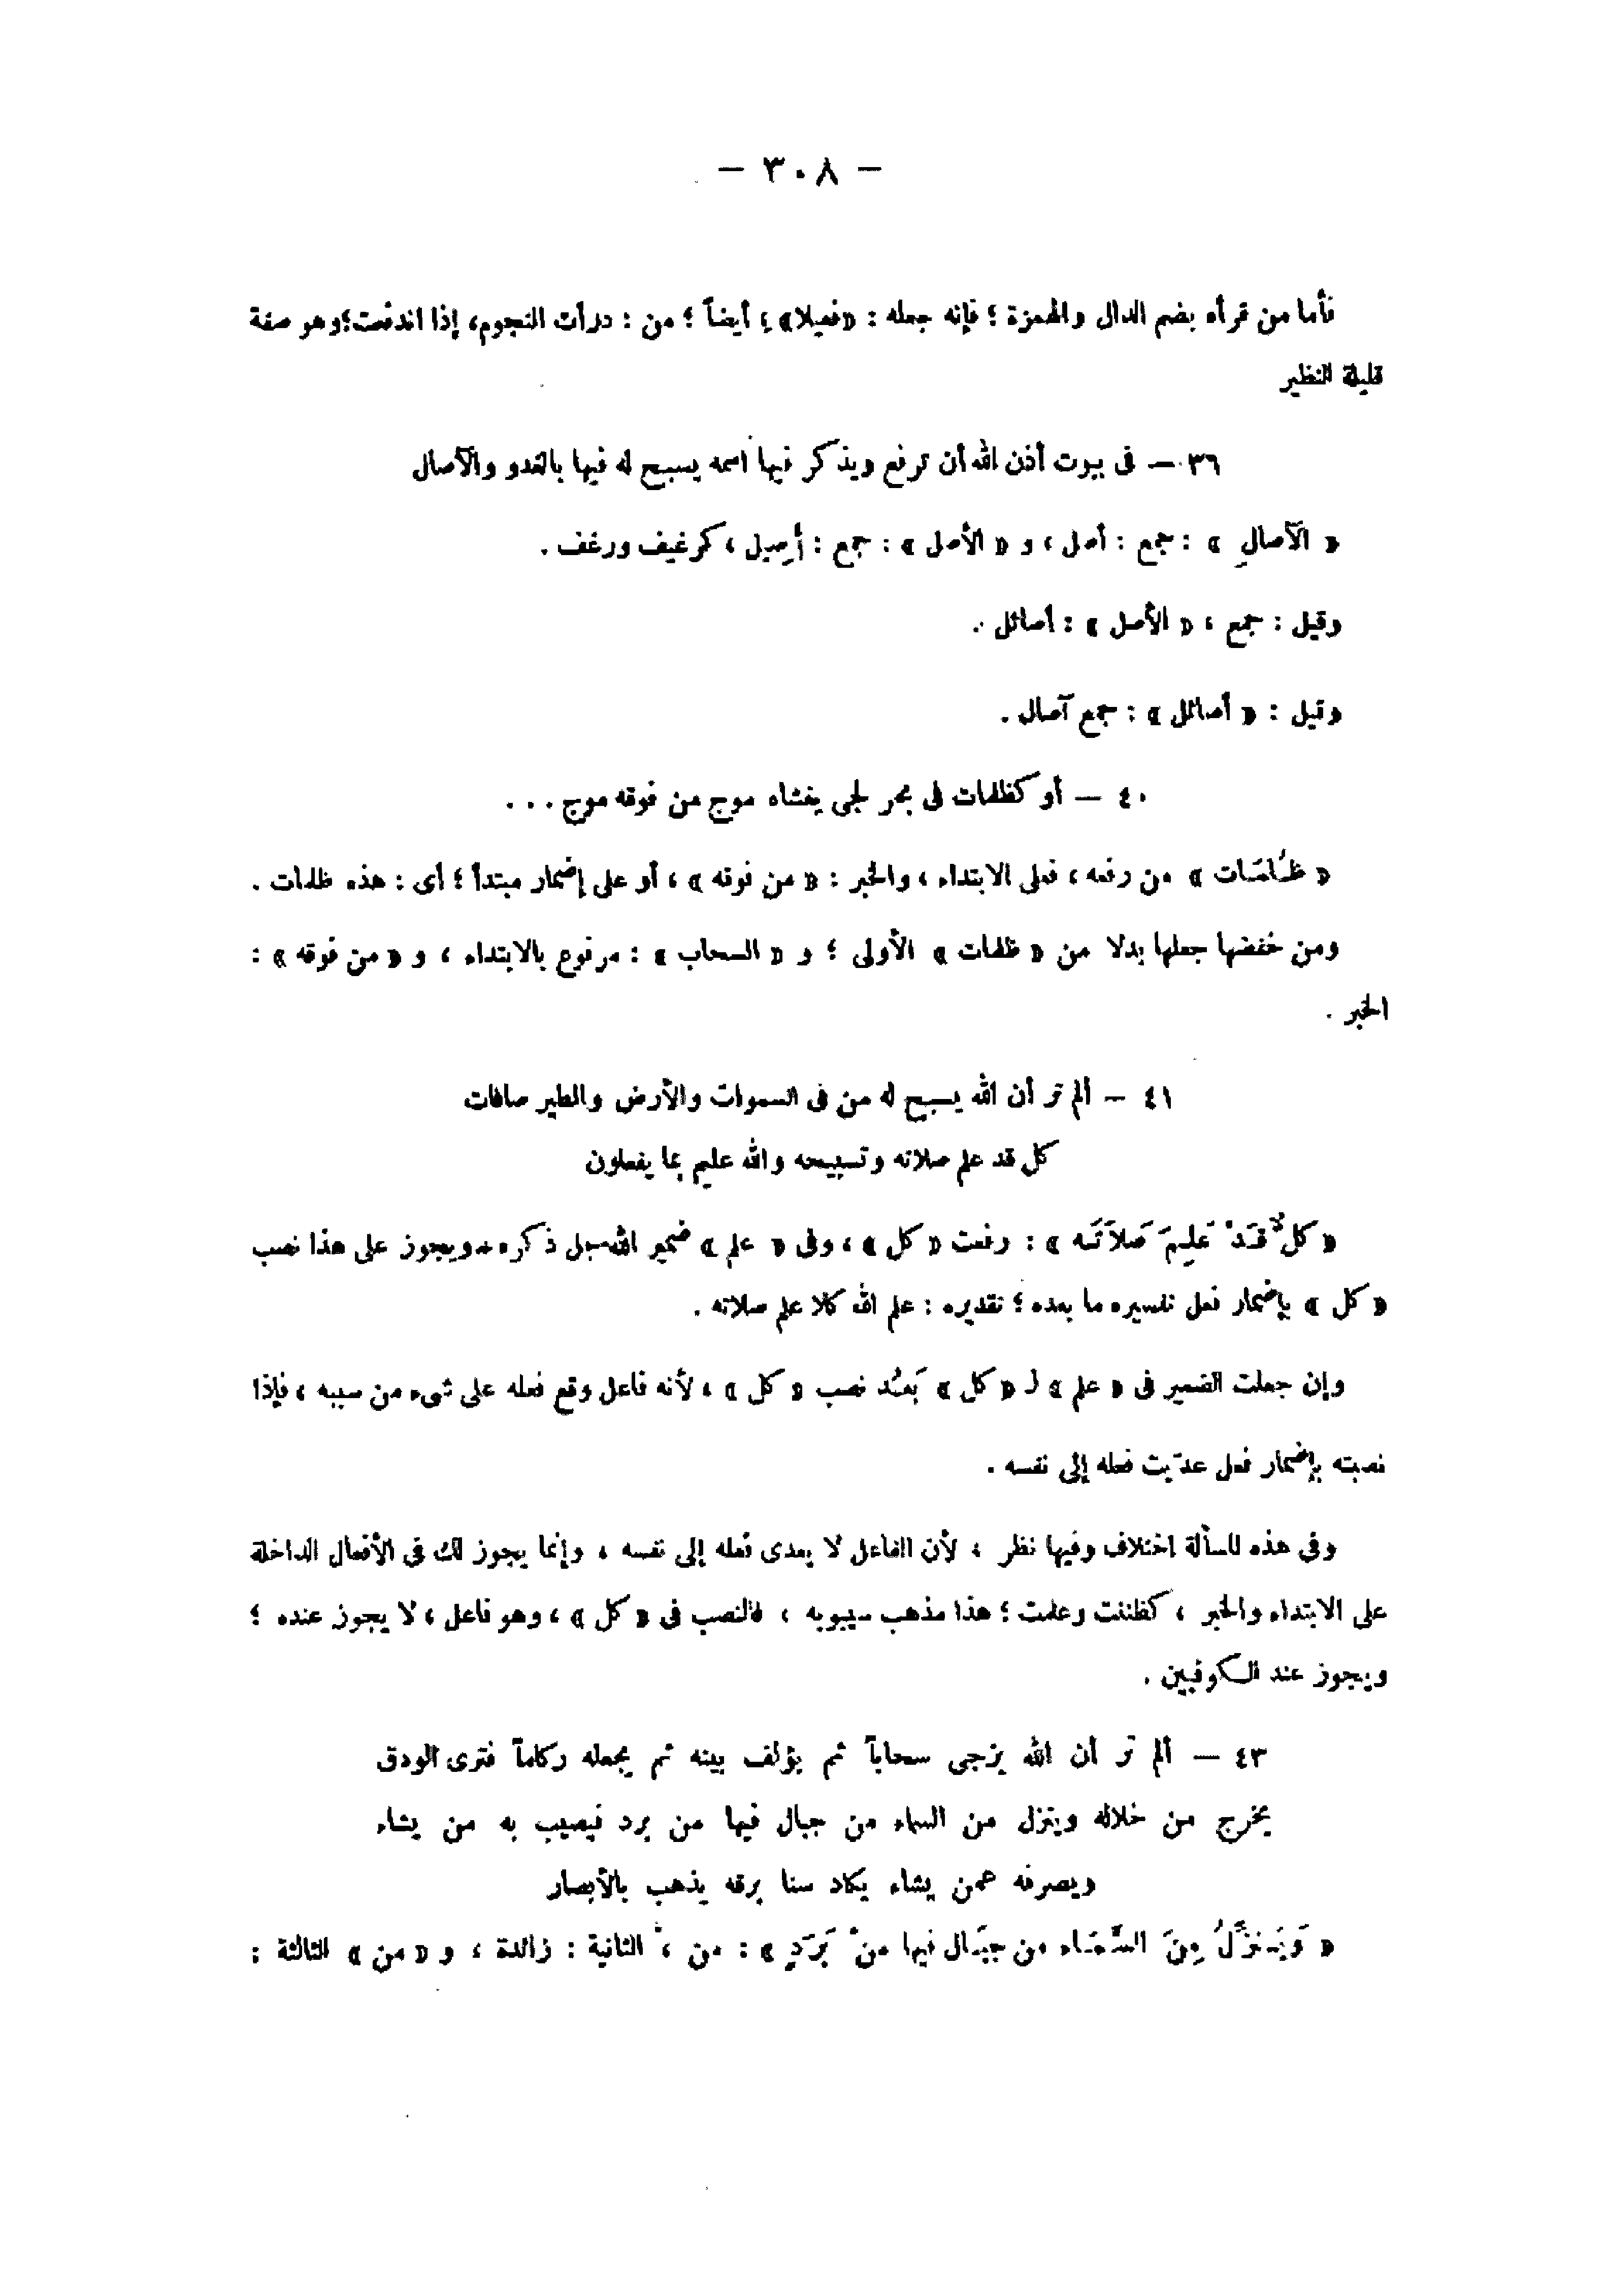 — ٣٠٨ —
فأما من قرأه بضم الدال والهمزة ؛ فإنه جعله : «فعيلا» ؛ أيضاً ؛ من : درأت النجوم، إذا اندفعت؛ وهو صفة
قليلة النظير
٣٦ — فى بيوت أذن الله أن ترفع ويذكر فيها اسمه يسبح له فيها بالغدو والآصال
« الآصالِ » : جمع : أصل ، و « الأصل » : جمع : أَصِيل ، كرغيف ورغف .
وقيل : جمع ، « الأصل » : أصائل .
وقيل : « أصائل » : جمع آصال .
٤٠ — أو كظلمات فى بحر لجى يغشاه موج من فوقه موج . . .
« ظُلُمَات » من رفعه ، فعلى الابتداء ، والخبر : « من فوقه » ، أو على إضمار مبتدأ ؛ أى : هذه ظلمات .
ومن خفضها جعلها بدلا من « ظلمات » الأولى ؛ و « السحاب » : مرفوع بالابتداء ، و « من فوقه » :
الخبر .
٤١ — ألم تر أن الله يسبح له من فى السموات والأرض والطير صافات
كل قد علم صلاته وتسبيحه والله عليم بما يفعلون
« كلٌّ قَدْ عَلِمَ صَلاَتَه » : رفعت « كل » ، وفى « علم » ضمير الله جل ذكره — ويجوز على هذا نصب
« كل » بإضمار فعل تفسيره ما بعده ؛ تقديره : علم الله كلا علم صلاته .
وإن جعلت الضمير فى « علم » لـ « كل » بَعُد نصب « كل » ، لأنه فاعل وقع فعله على شىء من سببه ، فإذا
نصبته بإضمار فعل عدّيت فعله إلى نفسه .
وفى هذه المسألة اختلاف وفيها نظر ، لأن الفاعل لا يعدى فعله إلى نفسه ، وإنما يجوز ذلك فى الأفعال الداخلة
على الابتداء والخبر ، كظننت وعلمت ؛ هذا مذهب سيبويه ، فالنصب فى « كل » ، وهو فاعل ، لا يجوز عنده ؛
ويجوز عند الكوفيين .
٤٣ — ألم تر أن الله يزجى سحاباً ثم يؤلف بينه ثم يجعله ركاماً فترى الودق
يخرج من خلاله وينزل من السماء من جبال فيها من برد فيصيب به من يشاء
ويصرفه عمن يشاء يكاد سنا برقه يذهب بالأبصار
« وَيُنَزِّلُ مِنَ السَّمَاء من جِبَال فيها منْ بَرَدٍ » : من ، الثانية : زائدة ، و « من » الثالثة :